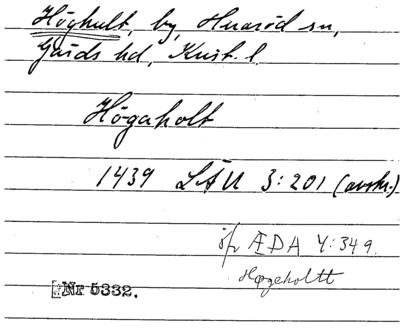 Höghult, by, Huaröd sn,
Gärds hd, Krist. l.
Högaholt
1439 LÄU 3:201 (avskr.)
jfr ÆDA Y:349.
Høgeholtt
Nr 5332.